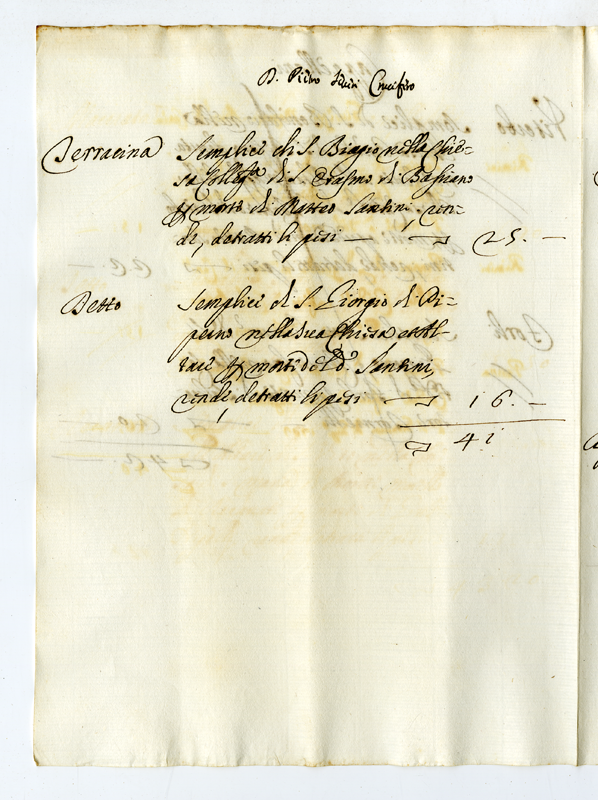 D. Pietro Crucifero
Terracina Semplici di S. Biagio nella Chie-
sa Colleg.ta di S. Erasmo di Bassiano
p morte di Matteo Santini, ren-
de, detratti li pesi — 25. —
Detto Semplici di S. Giorgio di Pi-
perno nella sua Chiesa et Al-
tare p morte del d.o Santini,
rende, detratti li pesi — 16. —
41